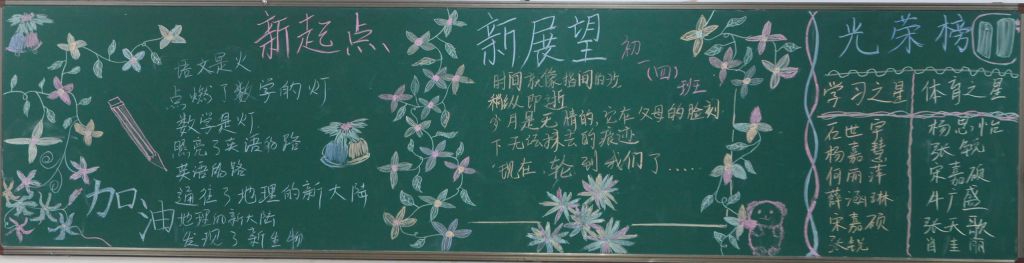 新起点
语文是火
点燃了数学的灯
数学是灯
照亮了英语的路
英语的路
通往了地理的新大陆
地理的新大陆
发现了新生物
加油
新展望
初一(四)班
时间就像指间的沙
稍纵即逝
岁月是无情的,它在父母的脸刻
下无法抹去的痕迹
现在,轮到我们了......
光荣榜
学习之星 体育之星
石世宇 杨思怡
杨嘉慧 张锐
何雨泽 宋嘉硕
薛涵琳 牛广盛
宋嘉硕 张天歌
张锐 雨